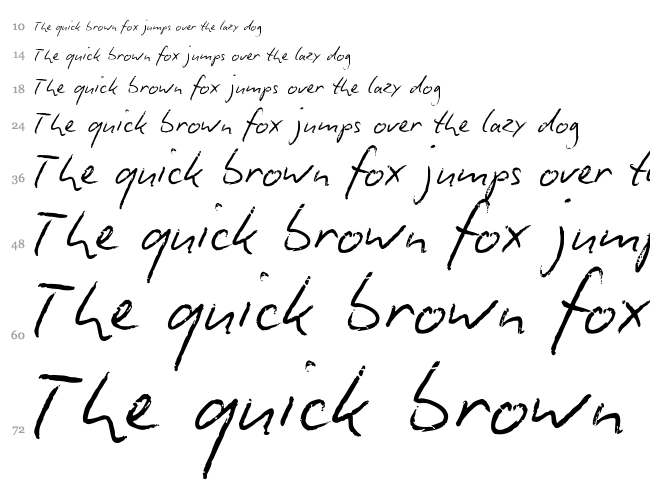 10 The quick brown fox jumps over the lazy dog
14 The quick brown fox jumps over the lazy dog
18 The quick brown fox jumps over the lazy dog
24 The quick brown fox jumps over the lazy dog
36 The quick brown fox jumps over t
48 The quick brown fox jump
60 The quick brown fox
72 The quick brown